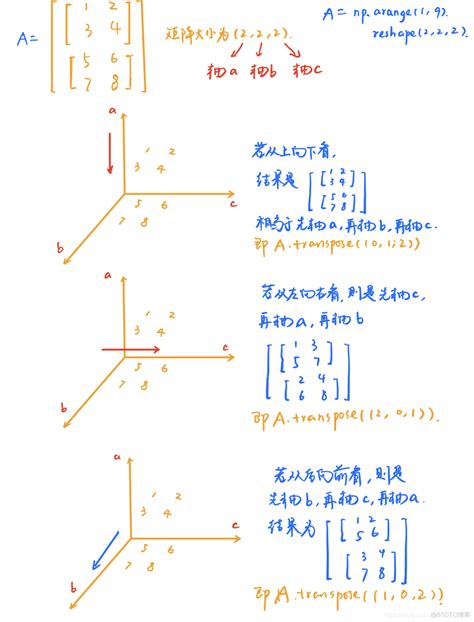 A = [ [ 1 2
3 4 ]
[ 5 6
7 8 ] ]
矩阵大小为 (2, 2, 2)
轴a 轴b 轴c
A = np.arange(1, 9).
reshape(2, 2, 2).
a
1 2
3 4
5 6
7 8
c
b
若从上向下看,
结果是 [ [ 1 2
3 4 ]
[ 5 6
7 8 ] ]
相当于先轴a, 再轴b, 再轴c.
即 A.transpose((0, 1, 2))
a
1 2
3 4
5 6
7 8
c
b
若从左向右看, 则是先轴c,
再轴a, 再轴b
[ [ 1 3
5 7 ]
[ 2 4
6 8 ] ]
即 A.transpose((2, 0, 1)).
a
1 2
3 4
5 6
7 8
c
b
若从后向前看, 则是
先轴b, 再轴c, 再轴a.
结果为 [ [ 1 2
5 6 ]
[ 3 4
7 8 ] ]
即 A.transpose((1, 0, 2)).
@51CTO博客